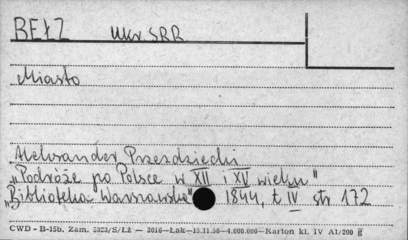 BEŁZ Ukr. SRR
Miasto
Aleksander Przezdziecki
„Podróże po Polsce w XII i XV wieku"
„Biblioteka Warszawska" 1844, t. IV str 172
CWD - B-15b. Zam. 5823/S/Łż — 2016—Łak—15.11.56—4.000.000—Karton kl. IV A1/200 g